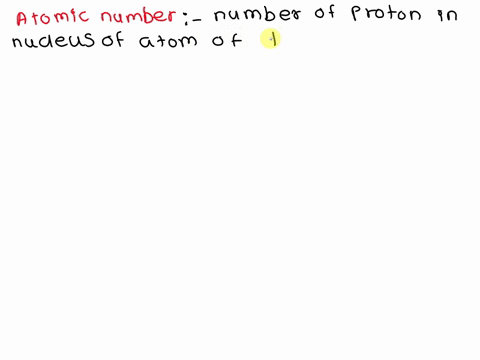 Atomic number:- number of proton in
nucleus of atom of